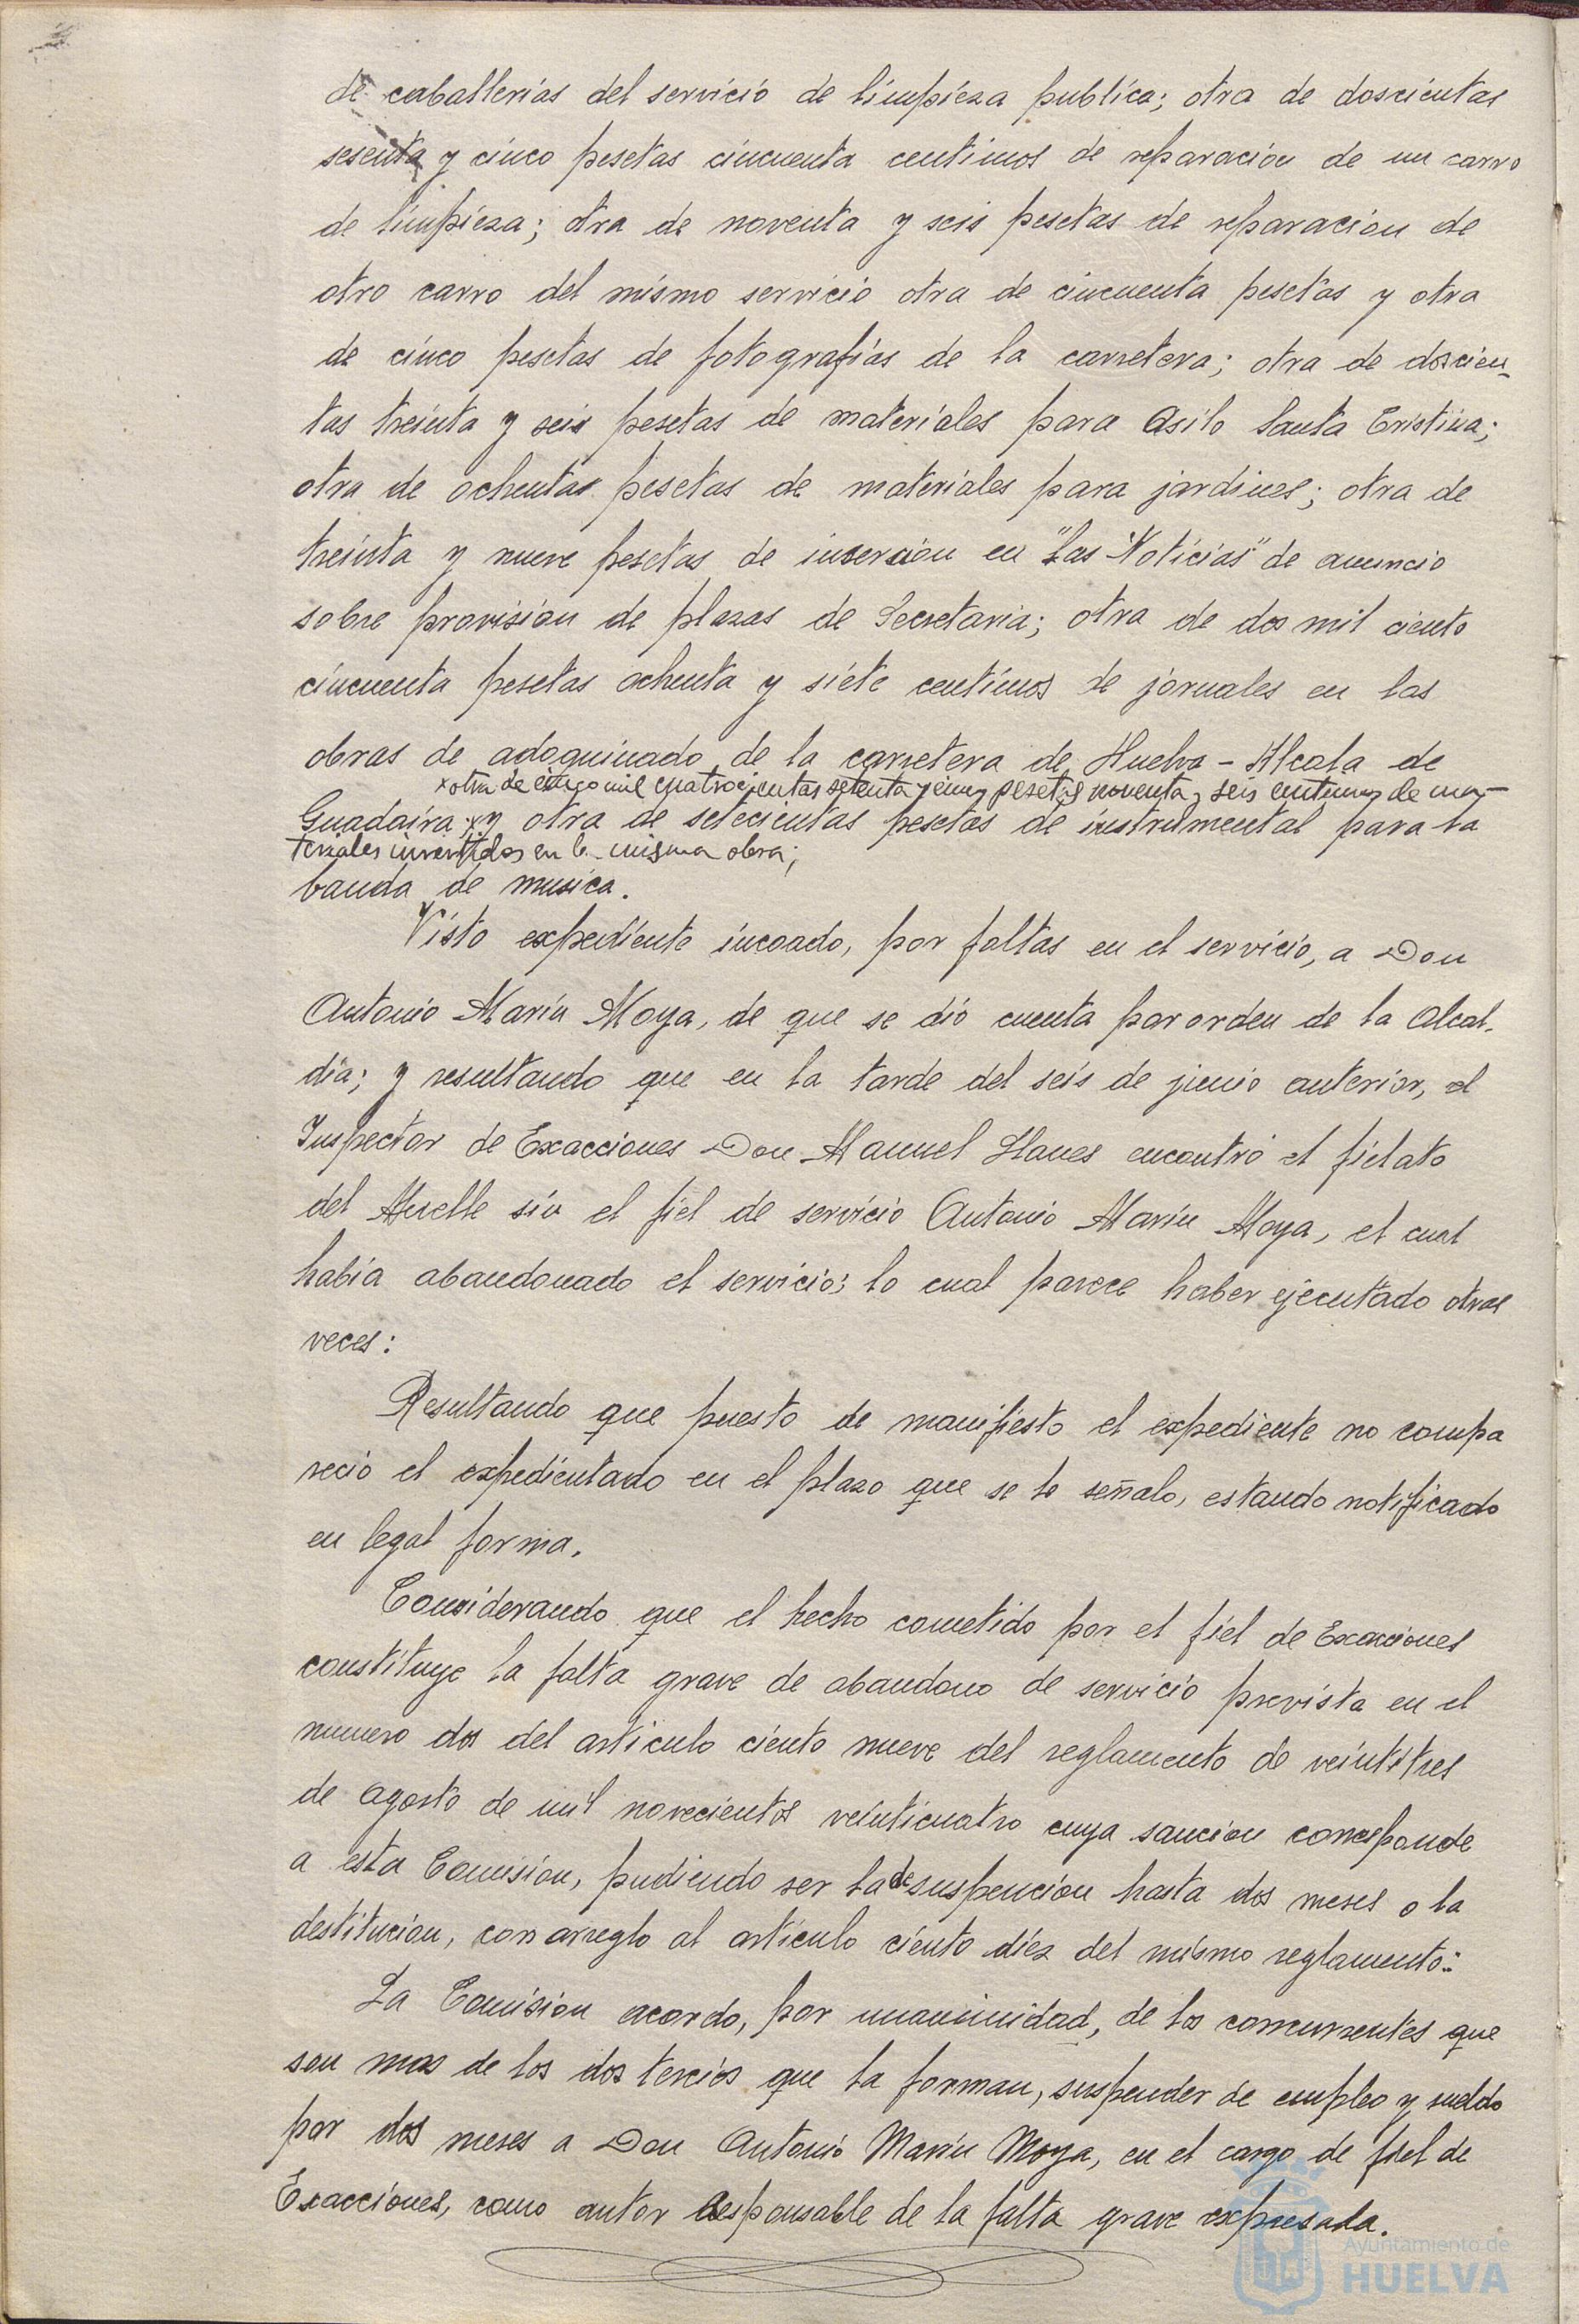 de caballerias del servicio de limpieza publica; otra de doscientas
sesenta y cinco pesetas cincuenta centimos de reparacion de un carro
de limpieza; otra de noventa y seis pesetas de reparacion de
otro carro del mismo servicio otra de cincuenta pesetas y otra
de cinco pesetas de fotografias de la carretera; otra de doscien-
tas treinta y seis pesetas de materiales para Asilo Santa Cristina;
otra de ochentas pesetas de materiales para jardines; otra de
treinta y nueve pesetas de insercion en "Las Noticias" de anuncio
sobre provision de plazas de Secretaria; otra de dos mil ciento
cincuenta pesetas ochenta y siete centimos de jornales en las
obras de adoquinado de la carretera de Huelva - Alcala de
x otra de cinco mil cuatrocientas setenta y cinco pesetas noventa y seis centimos de ma-
Guadaira x y otra de setecientas pesetas de instrumental para la
teriales invertidos en la misma obra;
banda de musica.
Visto expediente incoado, por faltas en el servicio, a Don
Antonio Marin Moya, de que se dio cuenta por orden de la Alcal-
dia; y resultando que en la tarde del seis de junio anterior, el
Inspector de Exacciones Don Manuel Llanes encontró el fielato
del Muelle sin el fiel de servicio Antonio Marin Moya, el cual
habia abandonado el servicio; lo cual parece haber ejecutado otras
veces:
Resultando que puesto de manifiesto el expediente no compa
recio el expedientado en el plazo que se le señalo, estando notificado
en legal forma.
Considerando que el hecho cometido por el fiel de Exacciones
constituye la falta grave de abandono de servicio prevista en el
numero dos del articulo ciento nueve del reglamento de veintitres
de agosto de mil novecientos veinticuatro cuya sancion corresponde
a esta Comision, pudiendo ser la de suspencion hasta dos meses o la
destitucion, con arreglo al articulo ciento diez del mismo reglamento:
La Comision acordo, por unanimidad, de los concurrentes que
son mas de los dos tercios que la forman, suspender de empleo y sueldo
por dos meses a Don Antonio Marin Moya, en el cargo de fiel de
Exacciones, como autor responsable de la falta grave expresada.
Ayuntamiento de
HUELVA